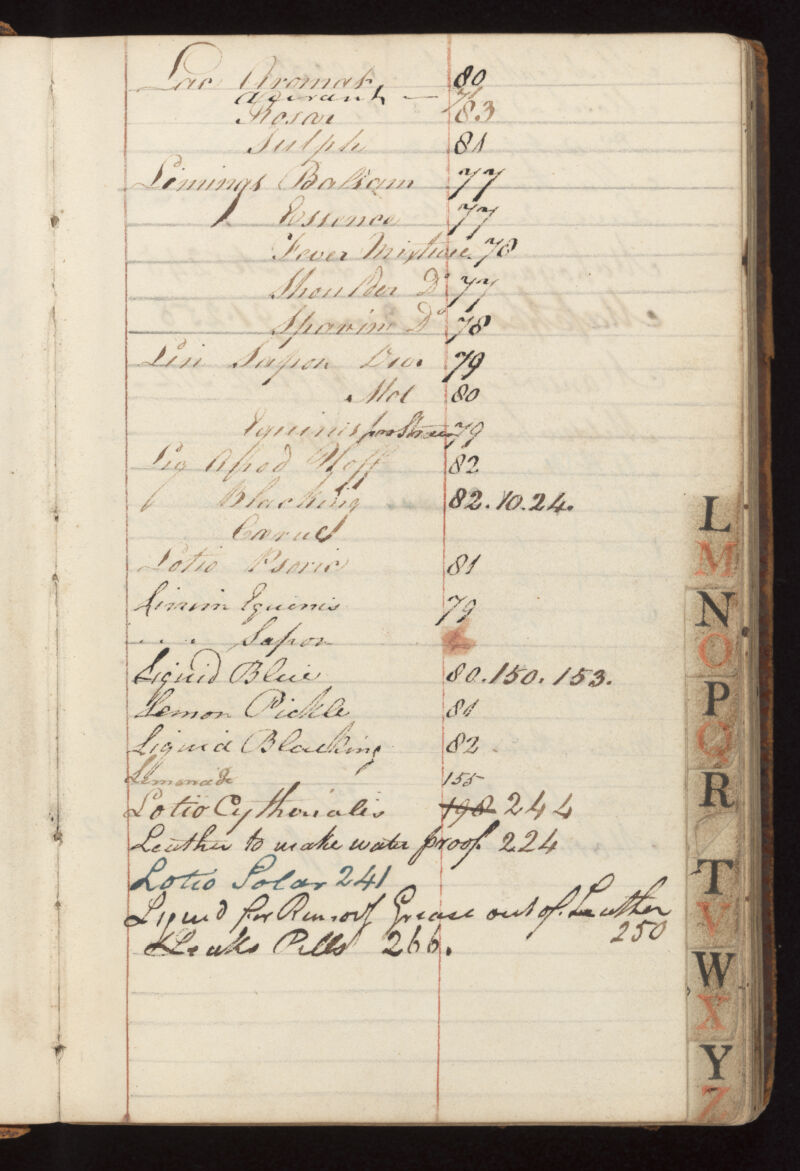 Lac Aromat 80
aperant — 71
Rosar 83
Sulph 81
Leinings Balsam 77
Essence 77
Fever Mixture 78
Shoulder Do 77
Spavin Do 78
Lin Sapon 79
Mol 80
Equinis for Strain 79
Liq Anod Hoff 82
Blacking 82.10.24.
Cœrul
Lotio Psoric 81
Linim Equinis 79
.... Sapon
Liquid Blue 80.150.153.
Lemon Pickle 81
Liquid Blacking 82
Lemonade 155
Lotio Cytherialis 198 244
Leather to make water proof 224
Lotio Solar 241
Liquid for Remov Grease out of Leather
250
Leaks Pills 266.
L
M
N
O
P
Q
R
T
V
W
X
Y
Z